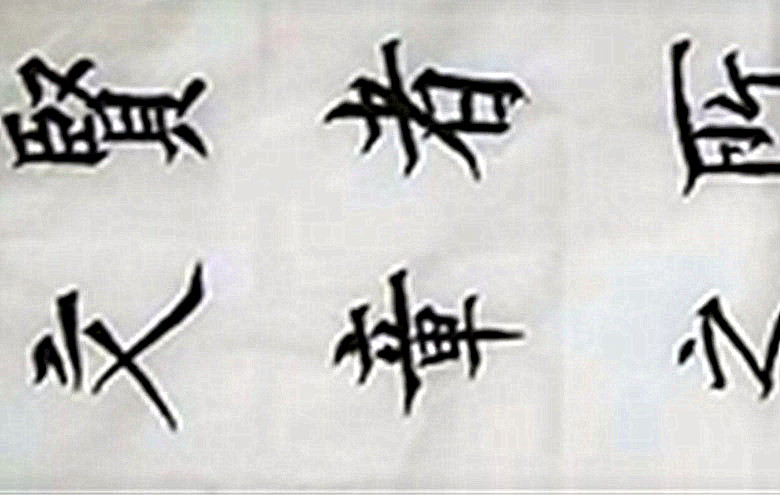 賢者所
文章之